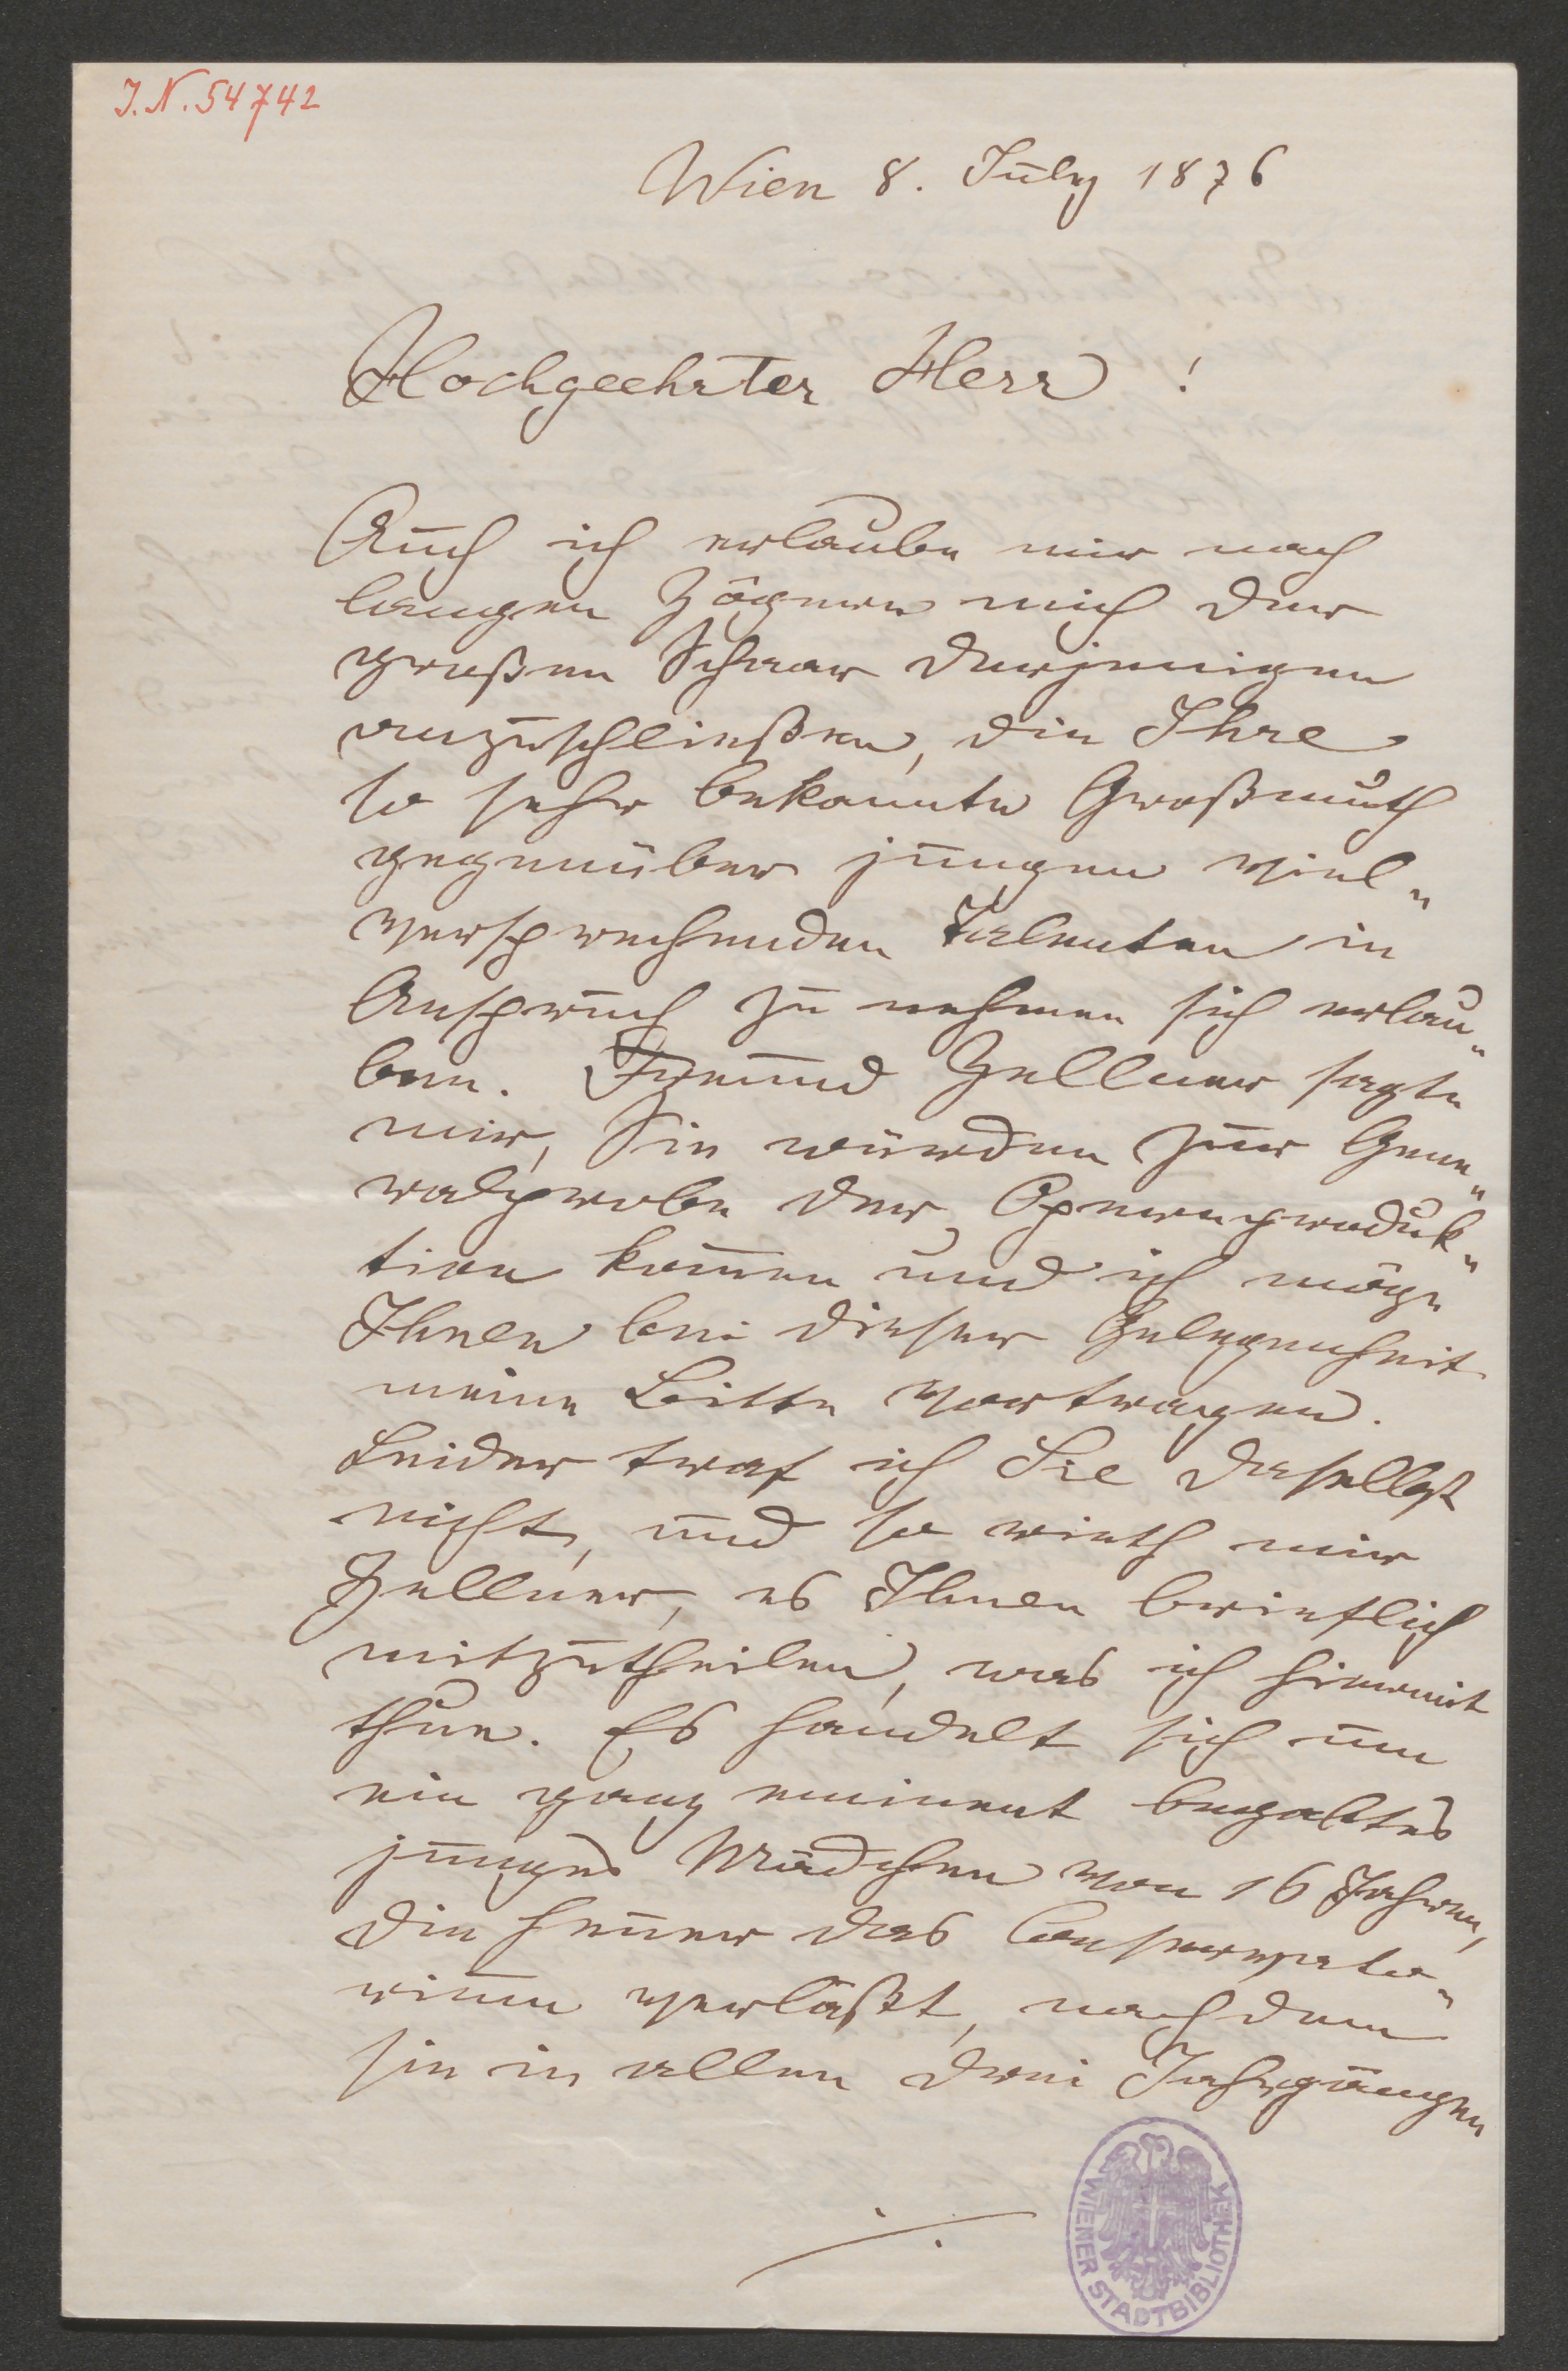 J.N. 54742
Wien 8. July 1876
Hochgeehrter Herr !
Auch ich erlaube mir nach
langen Zögern mich der
großen Schaar derjenigen
anzuschließen, die Ihre
so sehr bekannte Großmuth
gegenüber jungen viel„
versprechenden Talenten in
Anspruch zu nehmen sich erlau„
ben. Freund Zellner sagte
mir, Sie würden zur Gene„
ralprobe der Opernproduk„
tion kom̅en und ich möge
Ihnen bei dieser Gelegenheit
meine Bitte vortragen.
Leider traf ich Sie daselbst
nicht, und so rieth mir
Zellner, es Ihnen brieflich
mitzutheilen, was ich hiermit
thue. Es handelt sich um
ein ganz eminent begabtes
junges Mädchen von 16 Jahren,
die heuer das Conservato„
rium verläßt, nachdem
sie in allen drei Jahrgängen
./.
WIENER STADTBIBLIOTHEK